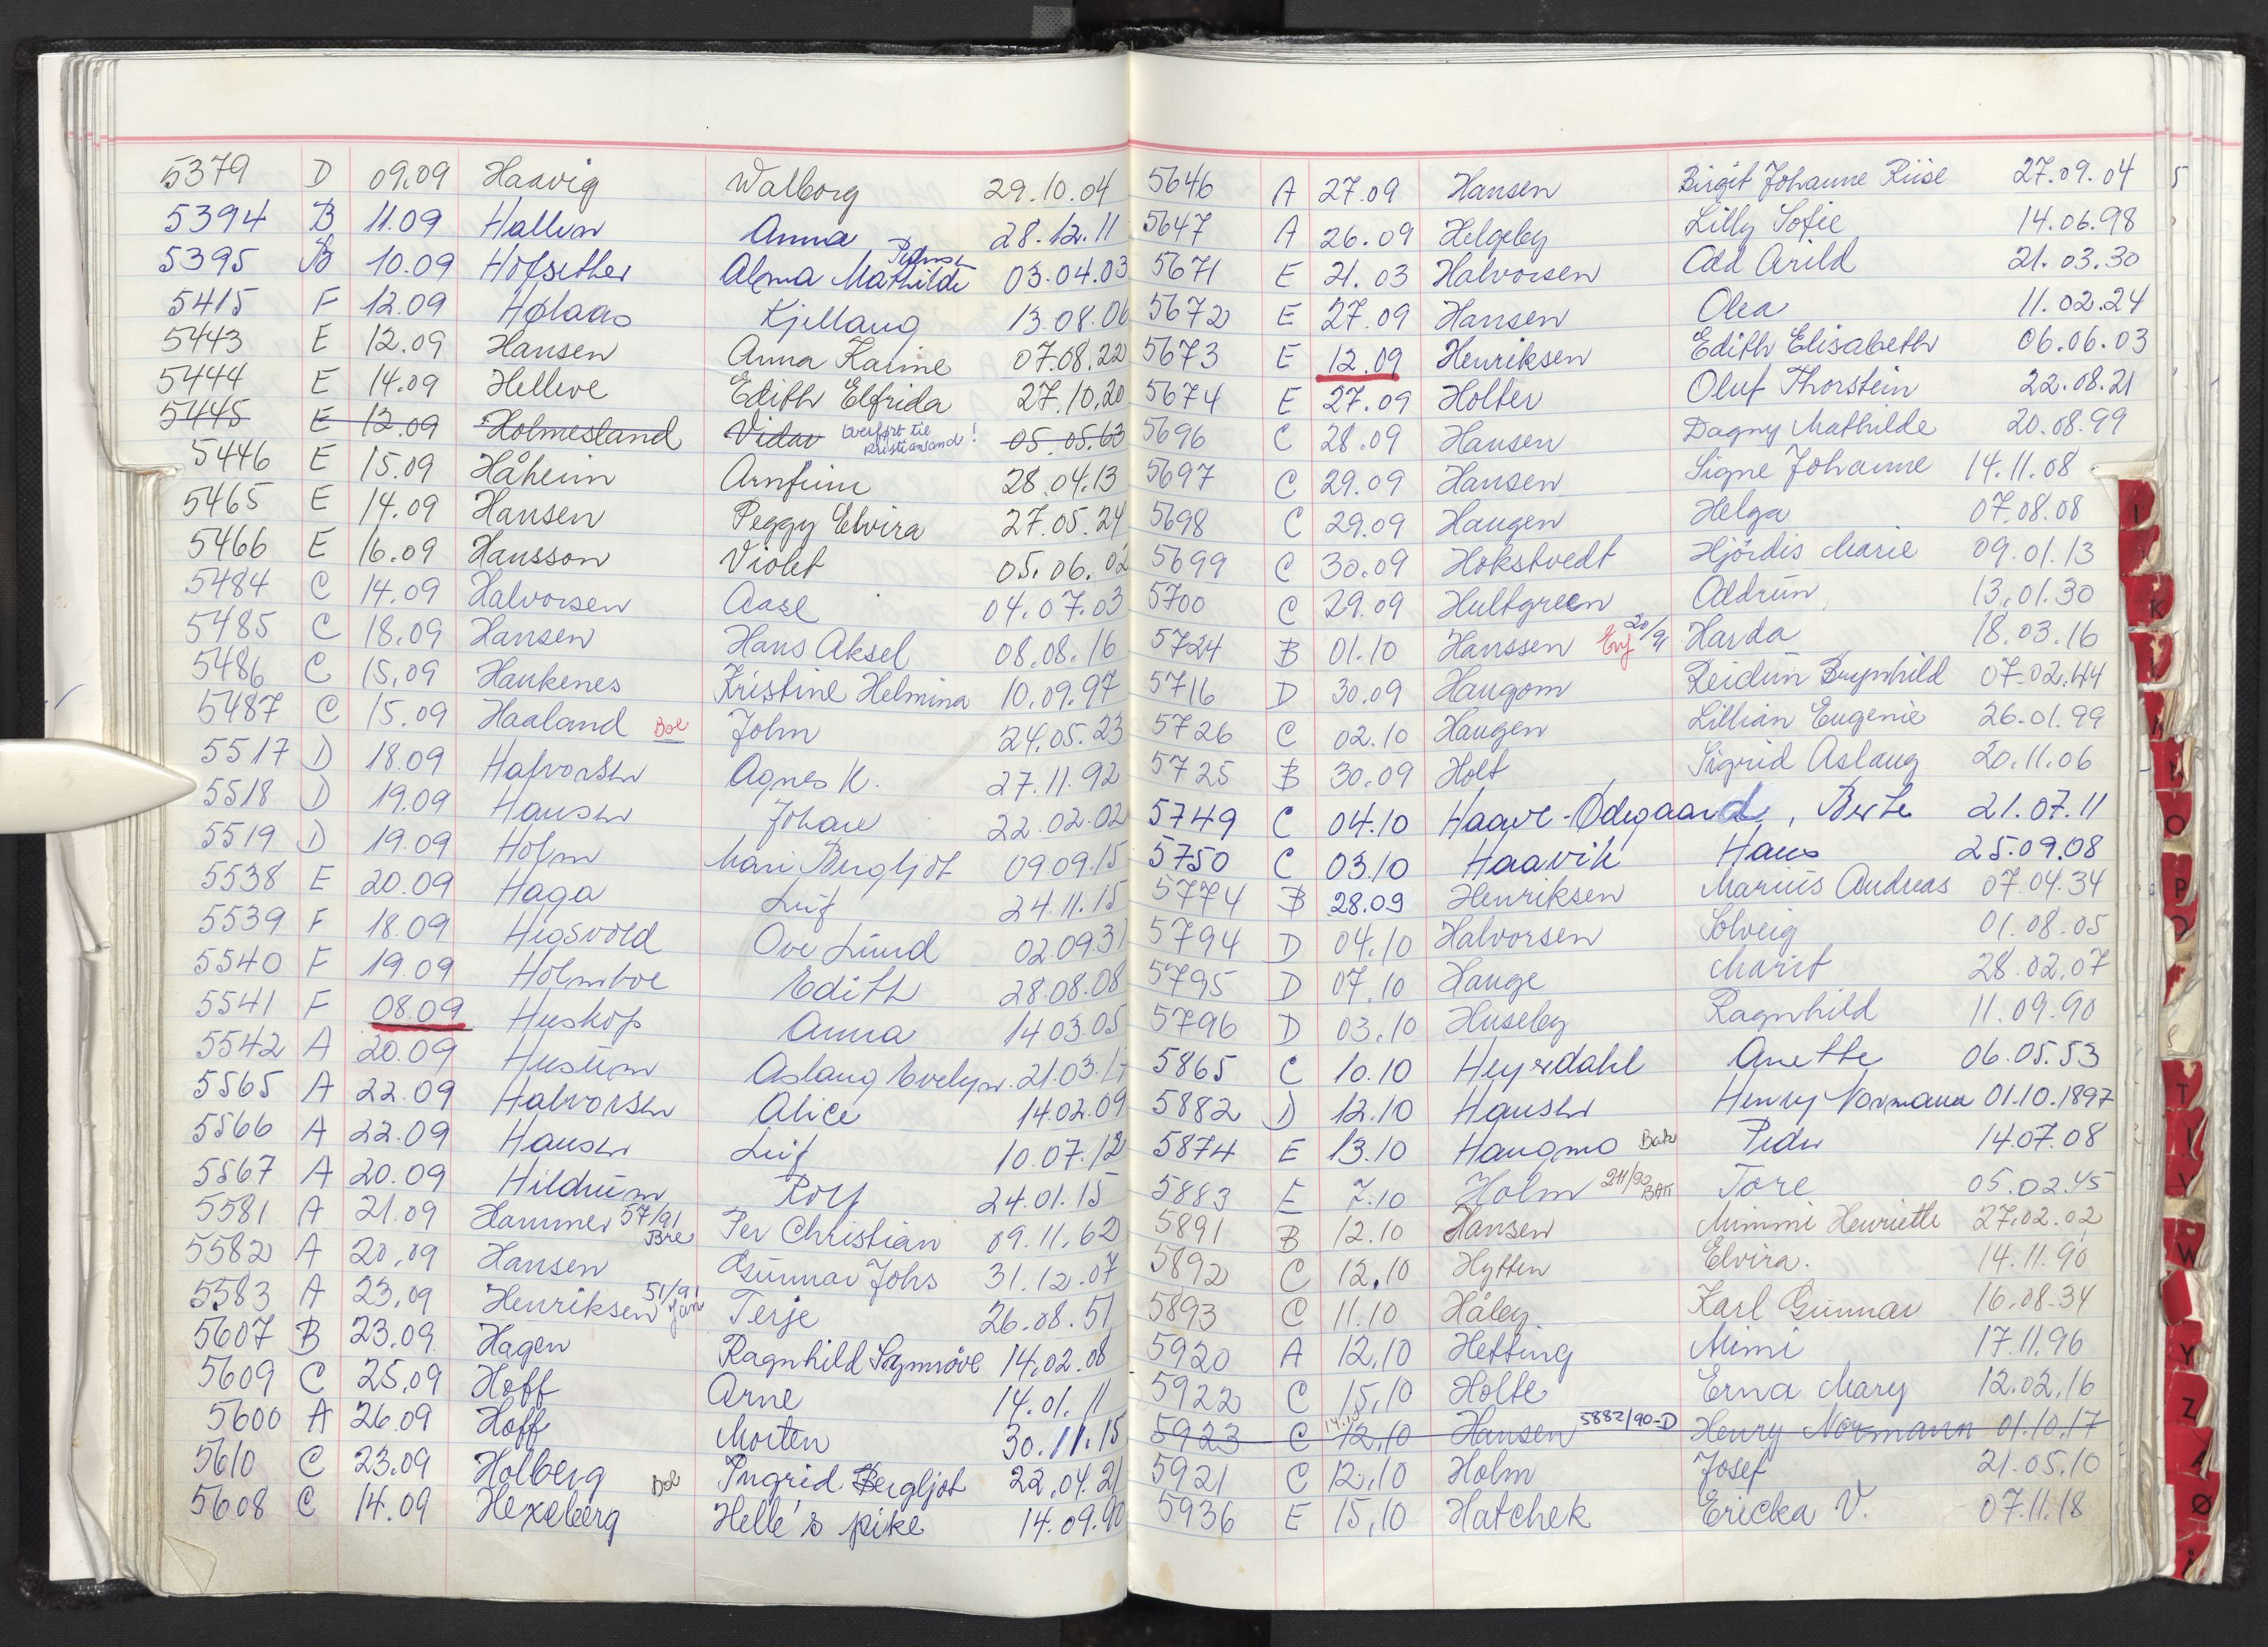 5379 D 09.09 Haavig Walborg 29.10.04
5394 B 11.09 Hallum Anna 28.12.11
5395 B 10.09 Hofsether Alma Mathilde 03.04.03
5415 F 12.09 Hølaas Kjellaug 13.08.06
5443 E 12.09 Hansen Anna Karine 07.08.22
5444 E 14.09 Helleve Edith Elfrida 27.10.20
5445 E 12.09 Holmesland Vidar overført til Kristiansand! 05.05.63
5446 E 15.09 Håheim Arnfinn 28.04.13
5465 E 14.09 Hansen Peggy Elvira 27.05.24
5466 E 16.09 Hansson Violet 05.06.02
5484 C 14.09 Halvorsen Aase 04.07.03
5485 C 18.09 Hansen Hans Aksel 08.08.16
5486 C 15.09 Haukenes Kristine Helmina 10.09.97
5487 C 15.09 Haaland Boe John 24.05.23
5517 D 18.09 Halvorsen Agnes K. 27.11.92
5518 D 19.09 Hansen Johan 22.02.02
5519 D 19.09 Holm Mari Bergljot 09.09.15
5538 E 20.09 Haga Leif 24.11.15
5539 F 18.09 Higsvold Ove Lund 02.09.31
5540 F 19.09 Holmboe Edith 28.08.08
5541 F 08.09 Huskop Anna 14.03.05
5542 A 20.09 Husum Aslaug Evelyn 21.03.17
5565 A 22.09 Halvorsen Alice 14.02.09
5566 A 22.09 Hansen Leif 10.07.12
5567 A 20.09 Hildrum Rolf 24.01.15
5581 A 21.09 Hammer 57/91 Bre Per Christian 09.11.62
5582 A 20.09 Hansen Gunnar Johs 31.12.07
5583 A 23.09 Henriksen 51/91 Jan Terje 26.08.51
5607 B 23.09 Hagen Ragnhild Synnøve 14.02.08
5609 C 25.09 Hoff Arne 14.01.11
5600 A 26.09 Hoff Morten 30.11.15
5610 C 23.09 Holberg Boe Ingrid Bergljot 22.04.21
5608 C 14.09 Hexeberg Helle's pike 14.09.90
5646 A 27.09 Hansen Birgit Johanne Riise 27.09.04
5647 A 26.09 Helgeby Lilly Sofie 14.06.98
5671 E 21.03 Halvorsen Odd Arild 21.03.30
5672 E 27.09 Hansen Olea 11.02.24
5673 E 12.09 Henriksen Edith Elisabeth 06.06.03
5674 E 27.09 Holter Oluf Thorstein 22.08.21
5696 C 28.09 Hansen Dagny Mathilde 20.08.99
5697 C 29.09 Hansen Signe Johanne 14.11.08
5698 C 29.09 Haugen Helga 07.08.08
5699 C 30.09 Hokstvedt Hjördis Marie 09.01.13
5700 C 29.09 Hultgreen Oddrun 13.01.30
5724 B 01.10 Hanssen 20/91 Harda 18.03.16
5716 D 30.09 Haugom Reidun Brynhild 07.02.44
5726 C 02.10 Haugen Lillian Eugenie 26.01.99
5725 B 30.09 Holt Sigrid Aslaug 20.11.06
5749 C 04.10 Haave-Ødegaard, Berte 21.07.11
5750 C 03.10 Haavik Hans 25.09.08
5774 B 28.09 Henriksen Marius Andreas 07.04.34
5794 D 04.10 Halvorsen Solveig 01.08.05
5795 D 07.10 Hauge Marit 28.02.07
5796 D 03.10 Huseby Ragnhild 11.09.90
5865 C 10.10 Heyerdahl Anette 06.05.53
5882 D 12.10 Hansen Henry Normann 01.10.1897
5874 E 13.10 Haugmo Bak Peder 14.07.08
5883 E 7.10 Holm 211/90 BAK Tore 05.02.45
5891 B 12.10 Hansen Mimmi Henriette 27.02.02
5892 C 12.10 Hytten Elvira. 14.11.90
5893 C 11.10 Håby Karl Gunnar 16.08.34
5920 A 12.10 Hetting Mimi 17.11.96
5922 C 15.10 Holte Erna Mary 12.02.16
5923 C 14.10 12.10 Hansen 5882/90-D Henry Normann 01.10.17
5921 C 12.10 Holm Josef 21.05.10
5936 E 15.10 Hatchek Ericka V. 07.11.18
I
K
O
P
T
V
W
Y
Z
Ø